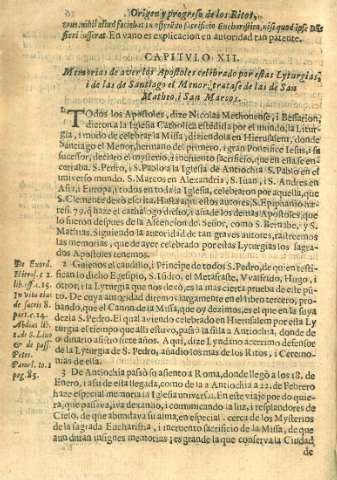 Origen y progreso de los Ritos,
fieri iusserat. En vano es explicacion en autoridad tan patente.
CAPITULO XII.
Memorias de aver los Apostoles celebrado por estas Lyturgias,
i de las de Santiago el Menor, tratase de las de San
Matheo, i San Marcos.
TOdos los Apostoles, dize Nicolas Methonense, i Bessarion,
dieron a la Iglesia Catholica esbâdida por el mundo, la Litur-
gia, i modo de celebrar la Missa; diziendola en Hierusalem, donde
Santiago el Menor, hermano del primero, i gran Pontifice Iesus, i su
sucessor, declarò el mysterio, i incruento sacrificio, que en ella se en-
cerraba. S. Pedro, i S. Pablo a la Iglesia de Antiochia S. Pablo en el
universo mundo. S. Marcos en Alexandria, S. Iuan, i S. Andres en
Asia, i Europa, i todos en toda la Iglesia, celebraron por aquella, que
S. Clemente dexò escrita. Hasta aqui estos autores, S. Epiphanio
res. 79. q haze el cathalogo desto, i añade los demas Apostoles, que
lo fueron despues de la Ascencion del Señor, como S. Bernabe, y S.
Mathias. Siguiendo la autoridad de tan graves autores, rastreemos
las memorias, que de aver celebrado por estas Lyturgias los sagra-
dos Apostoles tenemos.
De Euro.
Hierof. c 2.
lib. eff. c. 15.
de sacris B.
part. c. 24.
Abdias li.
1. de S. Lino
& de pass.
Petri.
Pamel. to. 2
pag. 85.
2 Guienos el caudillo, i Principe de todos S. Pedro, de quien testi-
fican lo dicho Egesipo, S. Isidro, el Metafraste, Vvalfrido, Hugo, i
otros; i la Lyturgia que nos dexò, es la mas cierta prueba de este pū-
to. De cuya autoridad diremos largamente en el libro tercero, pro-
bando, que el Canon de la Missa, que oy dezimos, es el que en la suya
dezia S. Pedro. El qual aviendo celebrado en Hierusalem por esta Ly
turgia el tiempo que alli estuvo, passò la silla a Antiochia, donde de
ordinario asistio siete años. Aqui, dize Lyndano acerrimo defensor
de la Lyturgia de S. Pedro, añadio los mas de los Ritos, i Ceremo-
nias de ella.
3 De Antiochia passò su asiento a Roma, donde llegò a los 18. de
Enero, i assi de esta llegada, como de la a Antiochia a 22. de Febrero
haze especial memoria la Iglesia universa. En este viaje por do quie-
ra, que passava, iva dexando, i comunicando la luz, i resplandores de
Cielo, de que abundava su alma, en especial cerca de los Mysterios
de la sagrada Eucharistia, i incruento sacrificio de la Missa, de que
aun duran insignes memorias; es grande la que conserva la Ciudad,
de